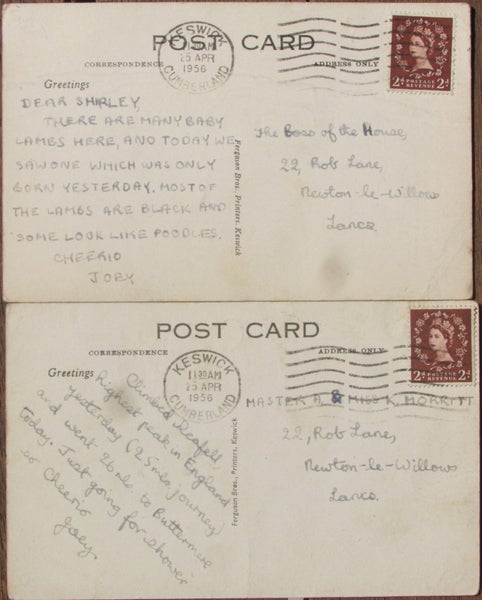 POST CARD
KESWICK
11 30 AM
25 APR
1956
CUMBERLAND
CORRESPONDENCE
ADDRESS ONLY
2d POSTAGE REVENUE 2d
Greetings
DEAR SHIRLEY,
THERE ARE MANY BABY
LAMBS HERE, AND TODAY WE
SAW ONE WHICH WAS ONLY
BORN YESTERDAY. MOST OF
THE LAMBS ARE BLACK AND
SOME LOOK LIKE POODLES.
CHEERIO
JOEY
Ferguson Bros., Printers, Keswick
The Boss of the House,
22, Rob Lane,
Newton-le-Willows
Lancs.
POST CARD
KESWICK
11 30 AM
25 APR
1956
CUMBERLAND
CORRESPONDENCE
ADDRESS ONLY
2d POSTAGE REVENUE 2d
Greetings
Climbed Scafell,
highest peak in England
yesterday (25 mile journey)
and went 26 mls to Buttermere
today. Just going for shower
so Cheerio
Joey.
Ferguson Bros., Printers, Keswick
MASTER A. & MISS K. MORRITT
22, Rob Lane,
Newton-le-Willows
Lancs.